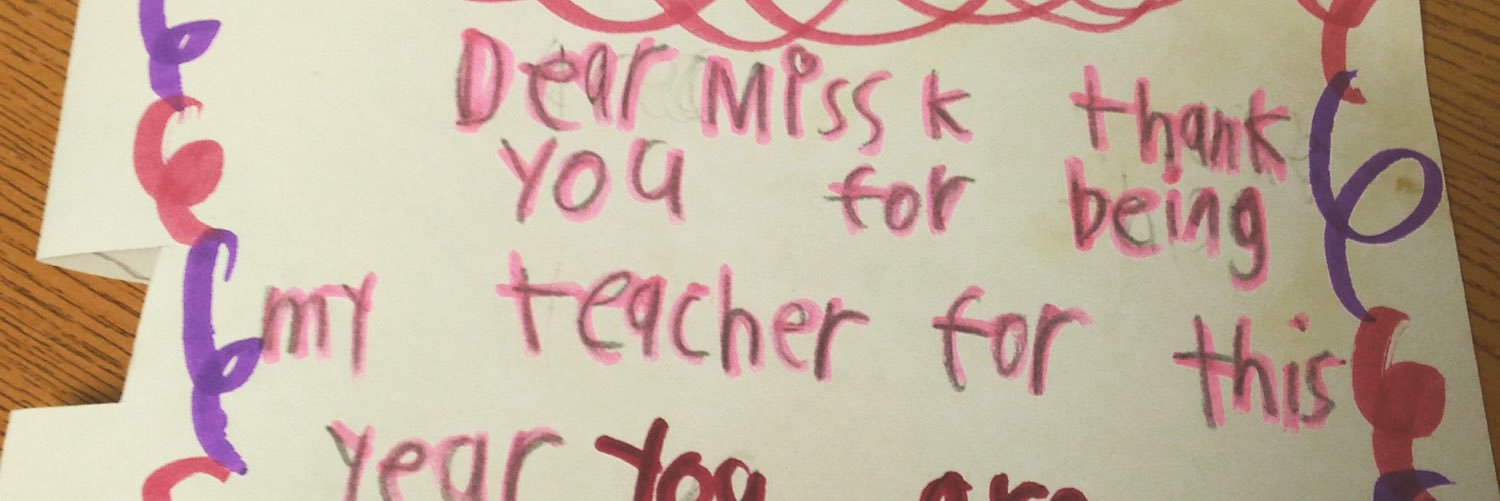 Dear Miss k thank
you for being
my teacher for this
year You are